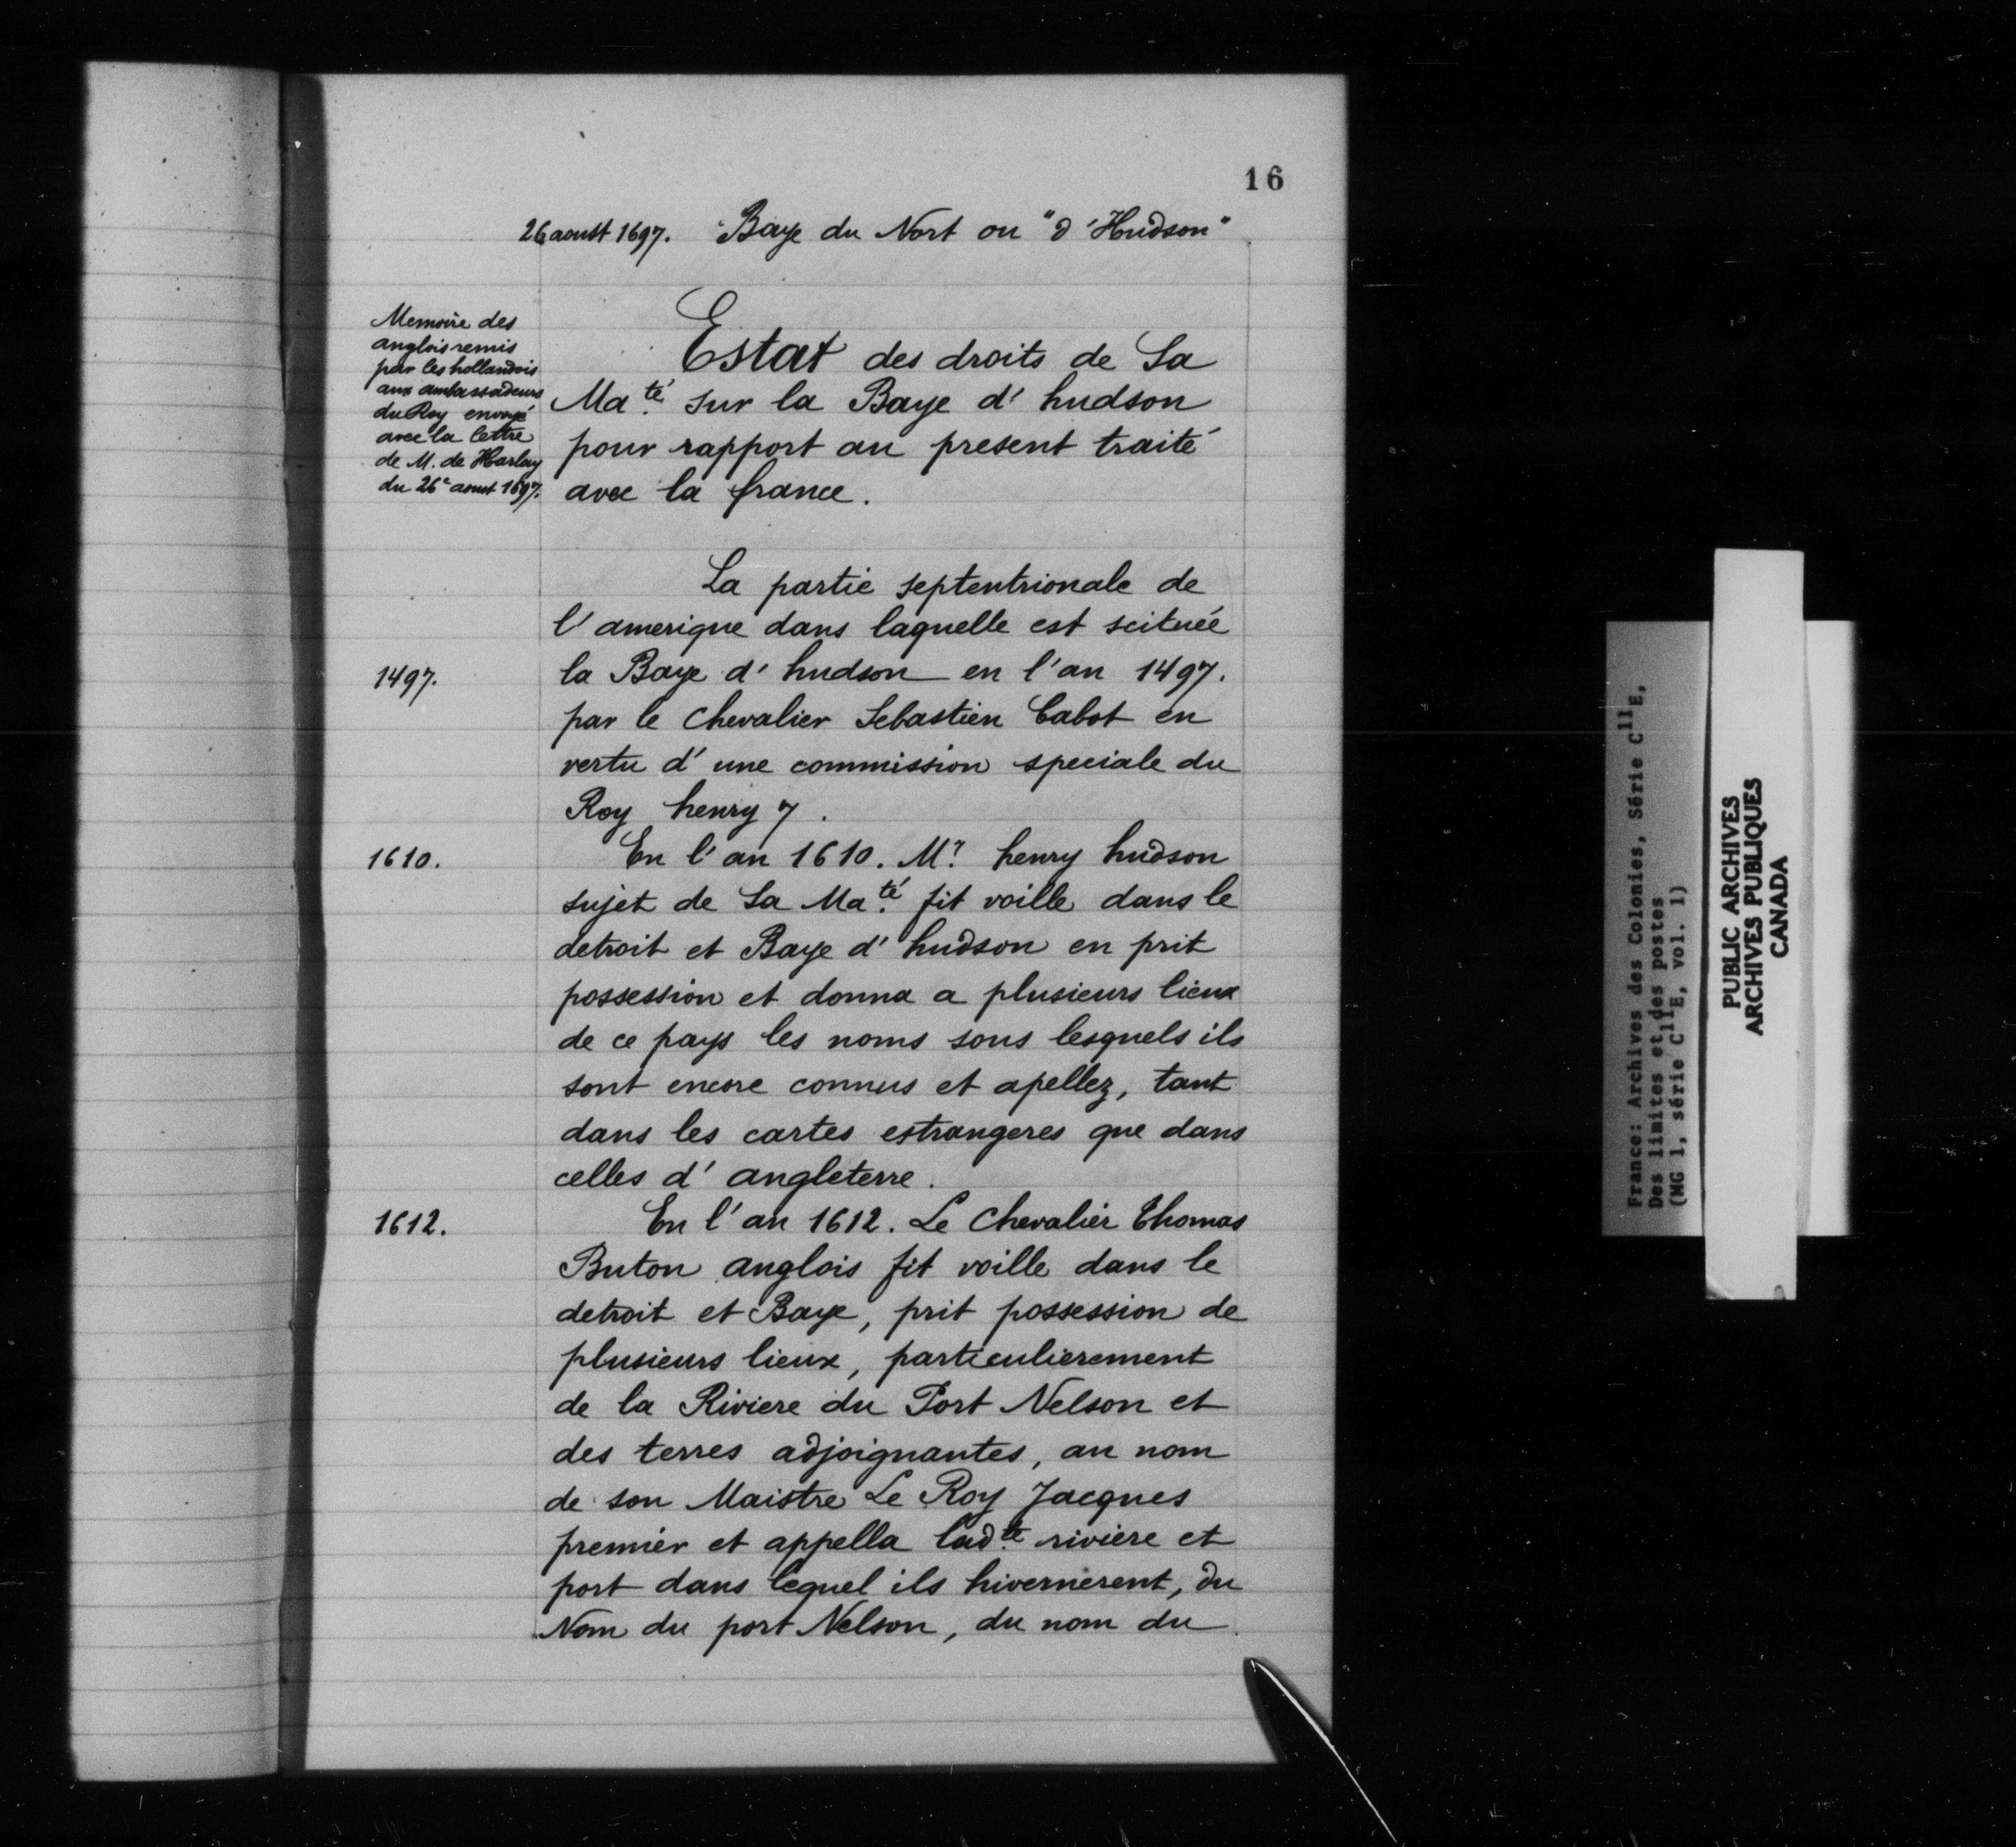 16
26 aoust 1697. Baye du Nort ou "d'Hudson"
Memoire des
anglois remis
par les hollandois
aux ambassadeurs
du Roy envoyé
avec la lettre
de M. de Harlay
du 26e aoust 1697.
Estat des droits de Sa
Maté sur la Baye d'hudson
pour rapport au present traité
avec la france.
La partie septentrionale de
l'amerique dans laquelle est scituée
1497. la Baye d'hudson en l'an 1497.
par le Chevalier Sebastien Cabot en
vertu d'une commission speciale du
Roy henry 7.
1610. En l'an 1610. Mr. henry hudson
sujet de Sa Maté fit voille dans le
detroit et Baye d'hudson en prit
possession et donna a plusieurs lieux
de ce pays les noms sous lesquels ils
sont encore connus et apellez, tant
dans les cartes estrangeres que dans
celles d'angleterre.
1612. En l'an 1612. Le Chevalier Thomas
Buton anglois fit voille dans le
detroit et Baye, prit possession de
plusieurs lieux, particulierement
de la Riviere du Port Nelson et
des terres adjoignantes, au nom
de son Maistre Le Roy Jacques
premier et appella ladte riviere et
port dans lequel ils hivernerent, du
Nom du port Nelson, du nom du
France: Archives des Colonies, Série C11E,
Des limites et des postes
(MG 1, série C11E, vol. 1)
PUBLIC ARCHIVES
ARCHIVES PUBLIQUES
CANADA